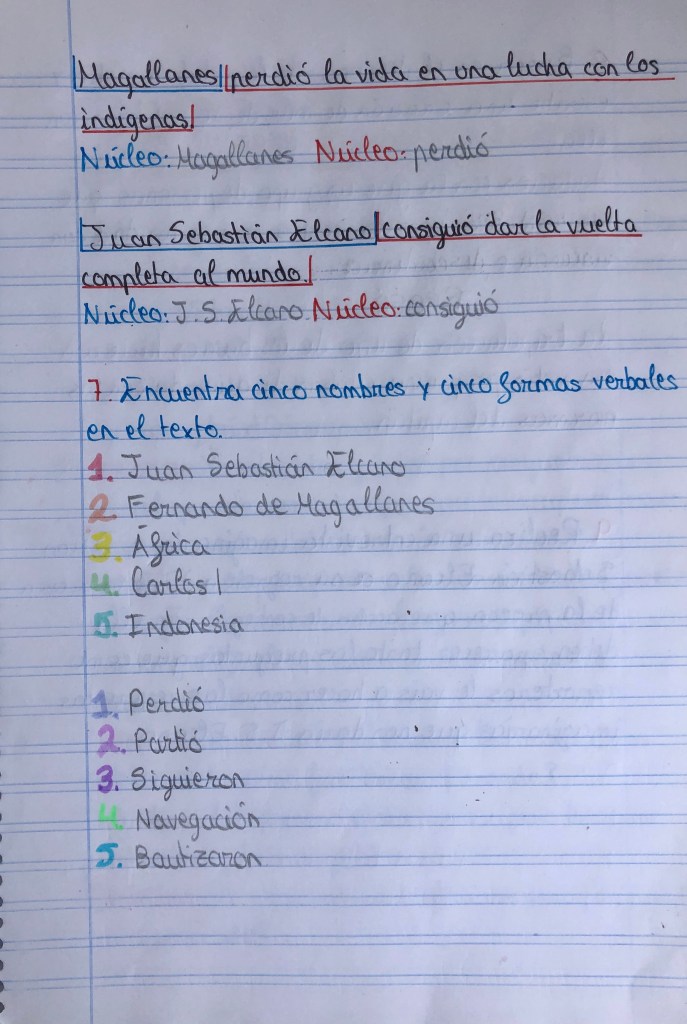 Magallanes perdió la vida en una lucha con los
indígenas
Núcleo: Magallanes Núcleo: perdió
Juan Sebastián Elcano consiguió dar la vuelta
completa al mundo.
Núcleo: J. S. Elcano Núcleo: consiguió
7. Encuentra cinco nombres y cinco formas verbales
en el texto.
1. Juan Sebastián Elcano
2. Fernando de Magallanes
3. África
4. Carlos I
5. Indonesia
1. Perdió
2. Partió
3. Siguieron
4. Navegación
5. Bautizaron